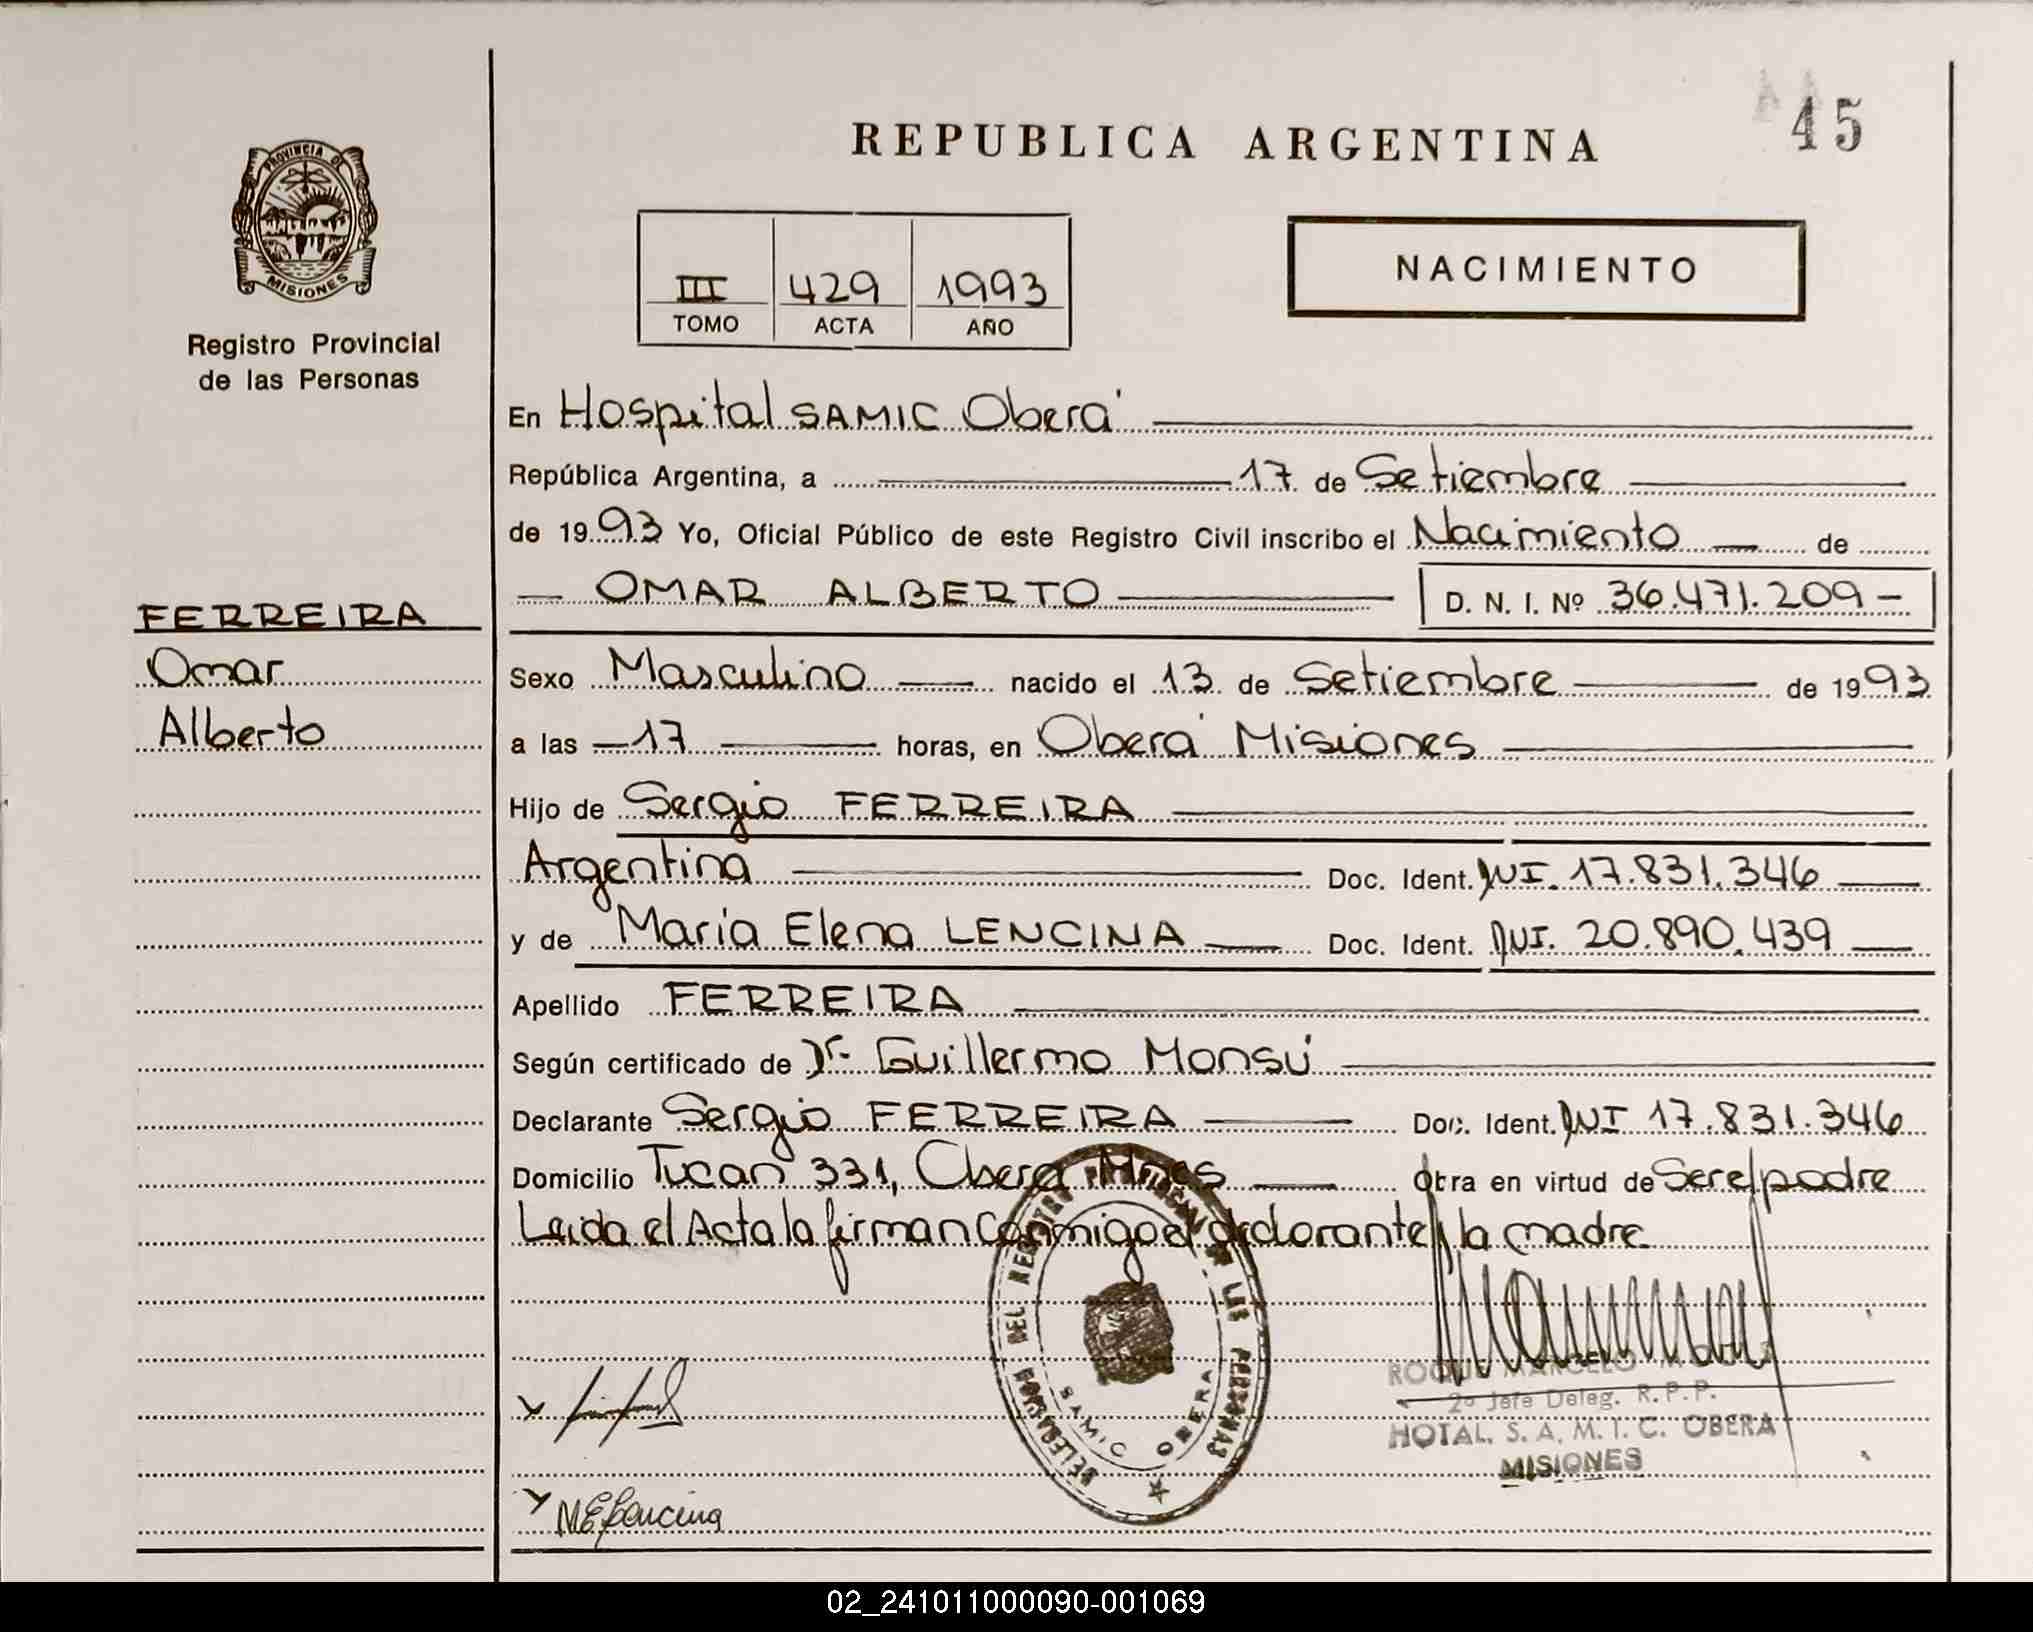 45
REPUBLICA ARGENTINA
PROVINCIA DE
MISIONES
Registro Provincial
de las Personas
III 429 1993
TOMO ACTA AÑO
NACIMIENTO
En Hospital SAMIC Oberá
República Argentina, a 17 de Setiembre
de 1993 Yo, Oficial Público de este Registro Civil inscribo el Nacimiento de
OMAR ALBERTO D. N. I. Nº 36.471.209-
FERREIRA
Omar
Alberto
Sexo Masculino nacido el 13 de Setiembre de 1993
a las 17 horas, en Oberá Misiones
Hijo de Sergio FERREIRA
Argentina Doc. Ident. DNI. 17.831.346
y de María Elena LENCINA Doc. Ident. DNI. 20.890.439
Apellido FERREIRA
Según certificado de Dr. Guillermo Monsú
Declarante Sergio FERREIRA Doc. Ident. DNI 17.831.346
Domicilio Tucan 331, Obera Mnes Obra en virtud de Ser el padre
Leida el Acta la firman Conmigo el declarante y la madre
DELEGACION DEL REGISTRO PROVINCIAL DE LAS PERSONAS
SAMIC OBERA
ROQUE MARCELO
2º Jefe Deleg. R.P.P.
HOTAL. S. A. M. I. C. OBERA
MISIONES
MELencina
02_241011000090-001069